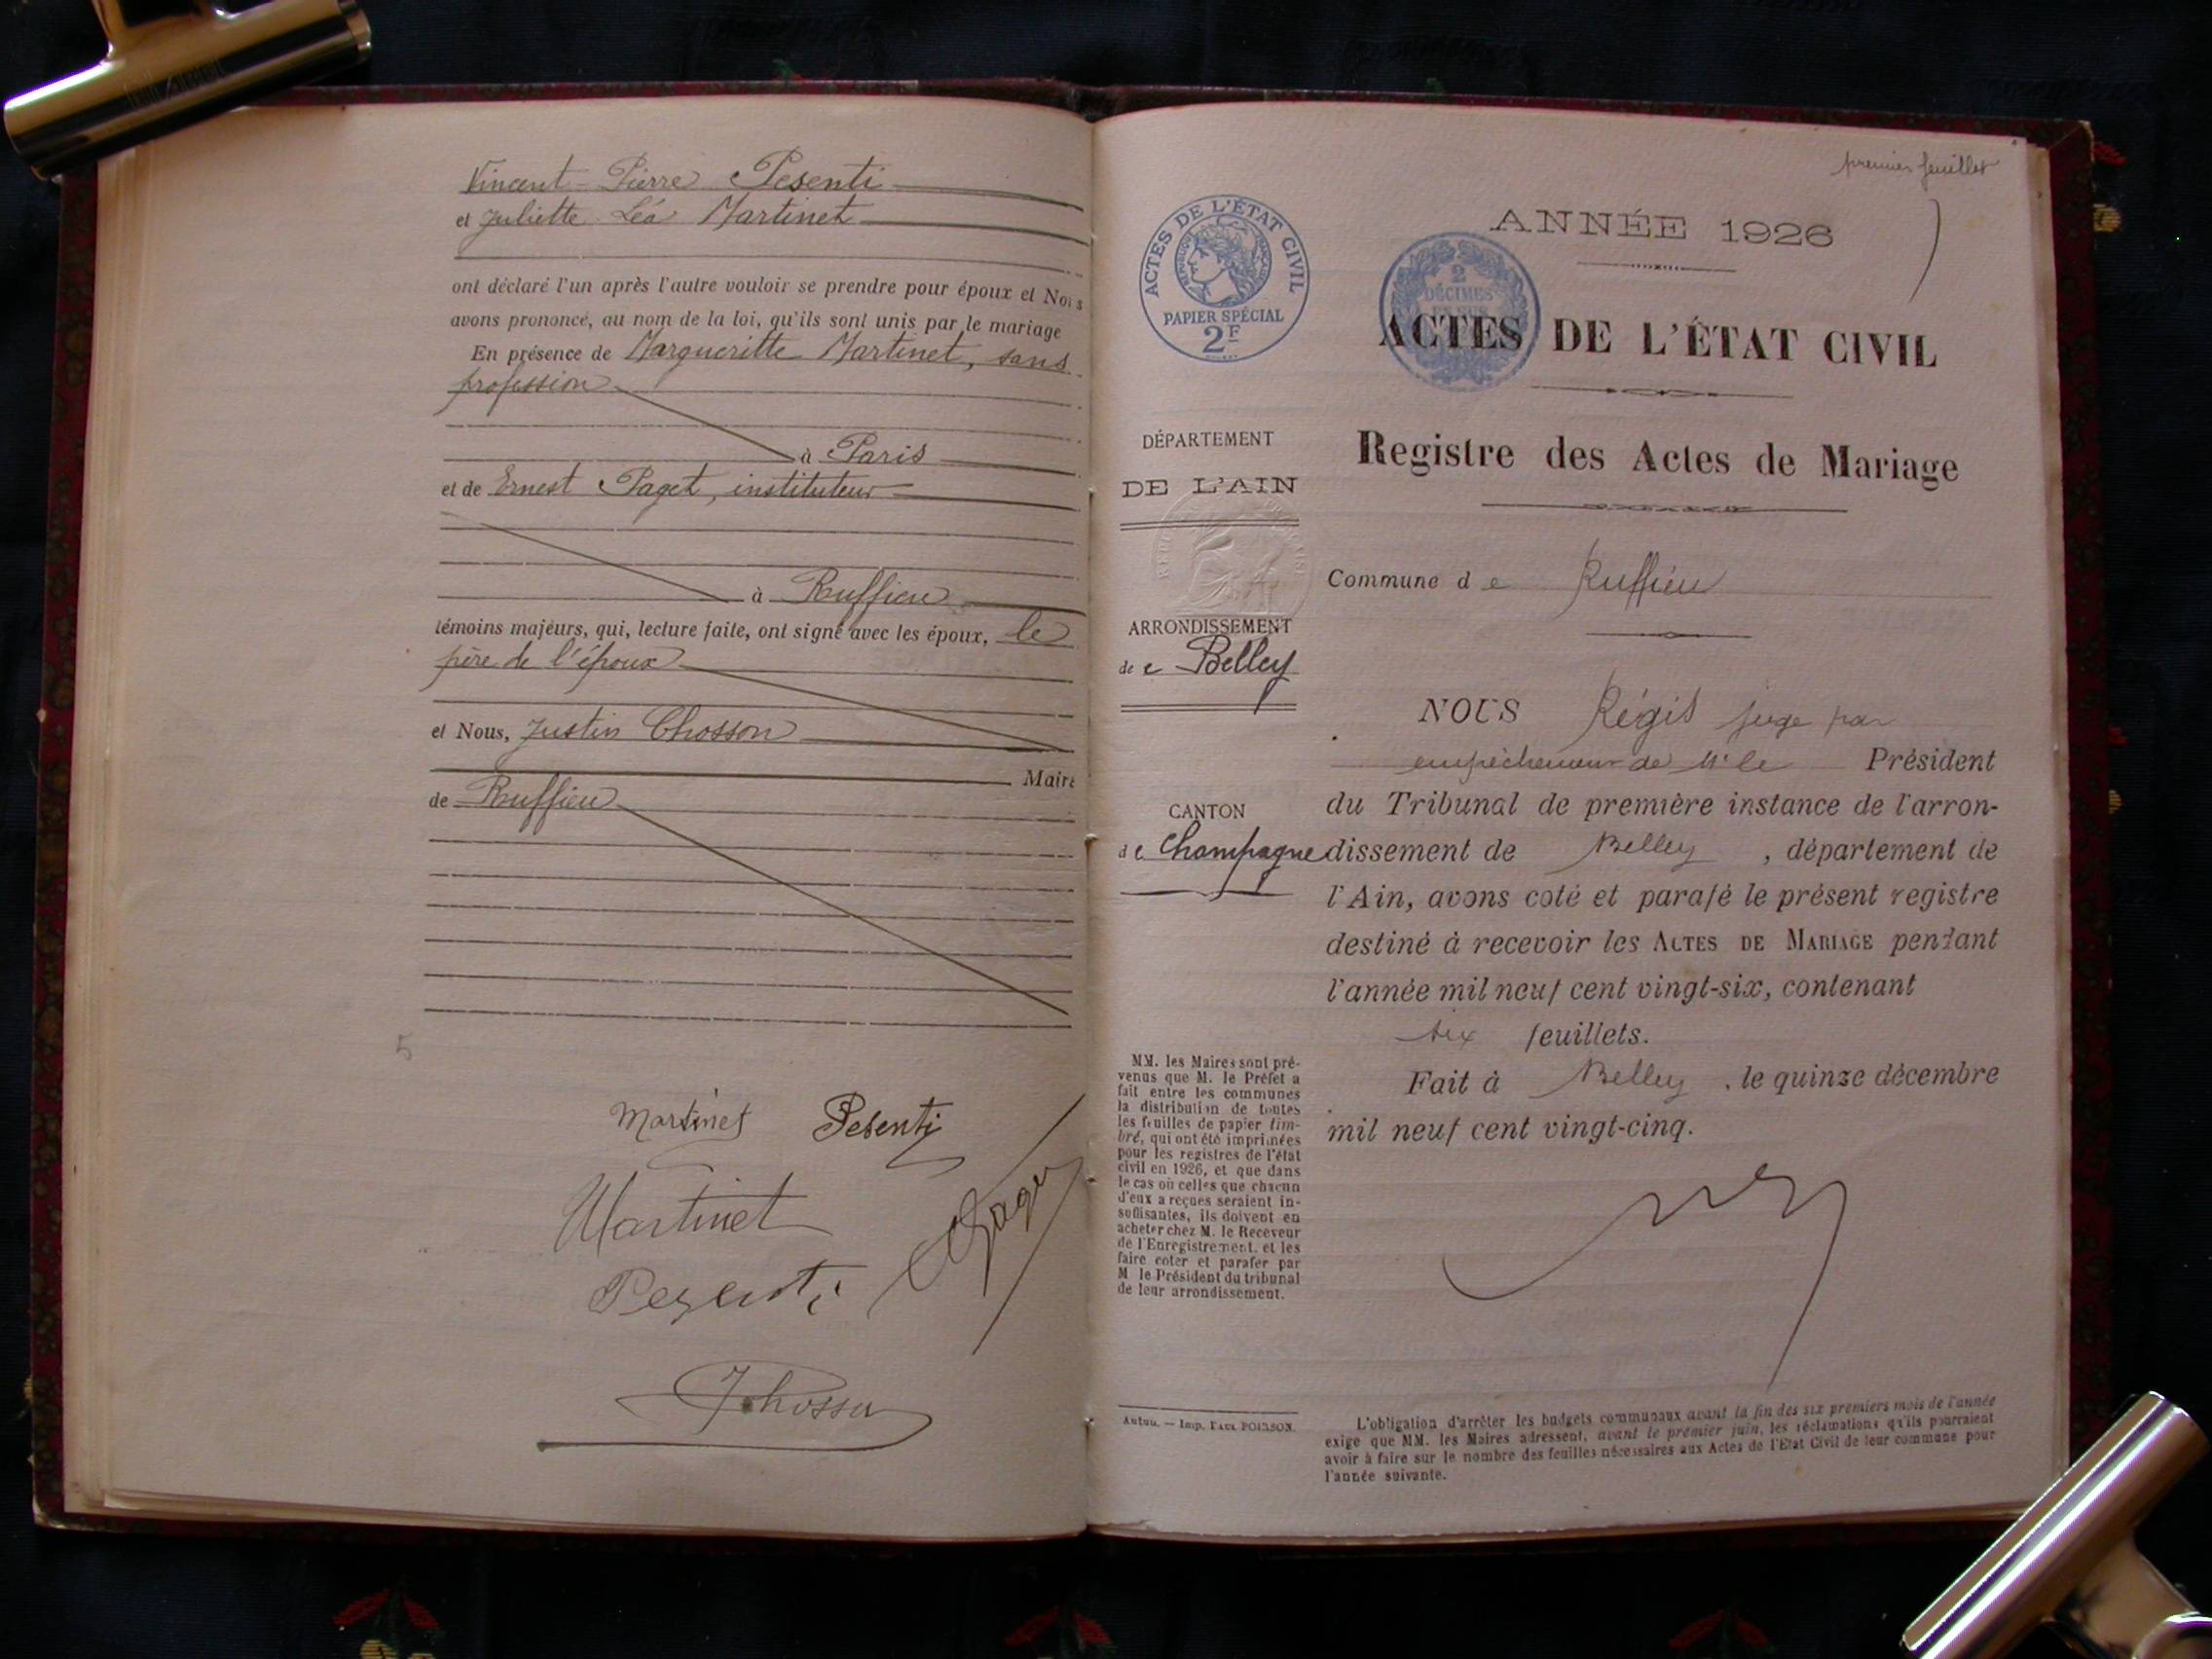 Vincent Pierre Pesenti
et Juliette Léa Martinet
ont déclaré l'un après l'autre vouloir se prendre pour époux et Nous
avons prononcé, au nom de la loi, qu'ils sont unis par le mariage
En présence de Margueritte Martinet, sans
profession
à Paris
et de Ernest Paget, instituteur
à Ruffieu
témoins majeurs, qui, lecture faite, ont signé avec les époux, le
père de l'époux
et Nous, Justin Chosson
Maire
de Ruffieu
5
Martinet Pesenti
Martinet
Paget
Pesenti
JChosson
premier feuillet
ANNÉE 1926
ACTES DE L'ÉTAT CIVIL
RÉPUBLIQUE FRANÇAISE
PAPIER SPÉCIAL
2F
2
DÉCIMES
ACTES DE L'ÉTAT CIVIL
Registre des Actes de Mariage
DÉPARTEMENT
DE L'AIN
Commune de Ruffieu
ARRONDISSEMENT
de Belley
CANTON
de Champagne
NOUS Régis juge par
empêchement de Mr le Président
du Tribunal de première instance de l'arron-
dissement de Belley, département de
l'Ain, avons coté et parafé le présent registre
destiné à recevoir les ACTES DE MARIAGE pendant
l'année mil neuf cent vingt-six, contenant
six feuillets.
Fait à Belley, le quinze décembre
mil neuf cent vingt-cinq.
MM. les Maires sont pré-
venus que M. le Préfet a
fait entre les communes
la distribution de toutes
les feuilles de papier tim-
bré, qui ont été imprimées
pour les registres de l'état
civil en 1926, et que dans
le cas où celles que chacun
d'eux a reçues seraient in-
suffisantes, ils doivent en
acheter chez M. le Receveur
de l'Enregistrement, et les
faire coter et parafer par
M. le Président du tribunal
de leur arrondissement.
Autun. — Imp. PAUL POIRSON.
L'obligation d'arrêter les budgets communaux avant la fin des six premiers mois de l'année
exige que MM. les Maires adressent, avant le premier juin, les réclamations qu'ils pourraient
avoir à faire sur le nombre des feuilles nécessaires aux Actes de l'État Civil de leur commune pour
l'année suivante.